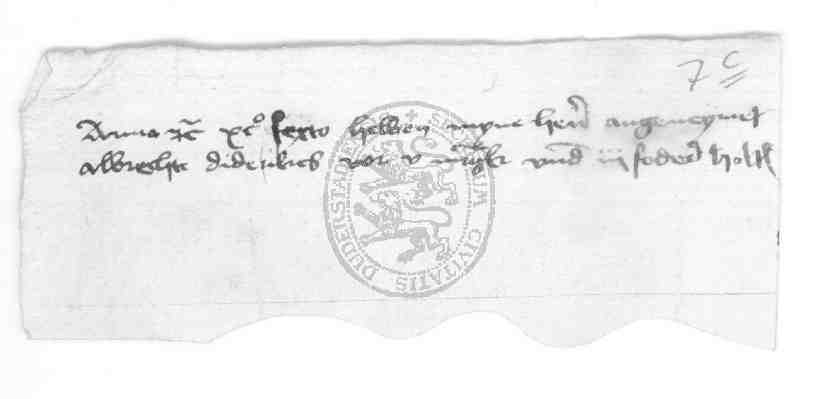 7 c
Anno rc xcº sexto hebben myne hern angenymet
albrechte diderikes vor v mrgk vnd iij foder holt
SIGILLUM CIVITATIS DUDERSTADENSIS